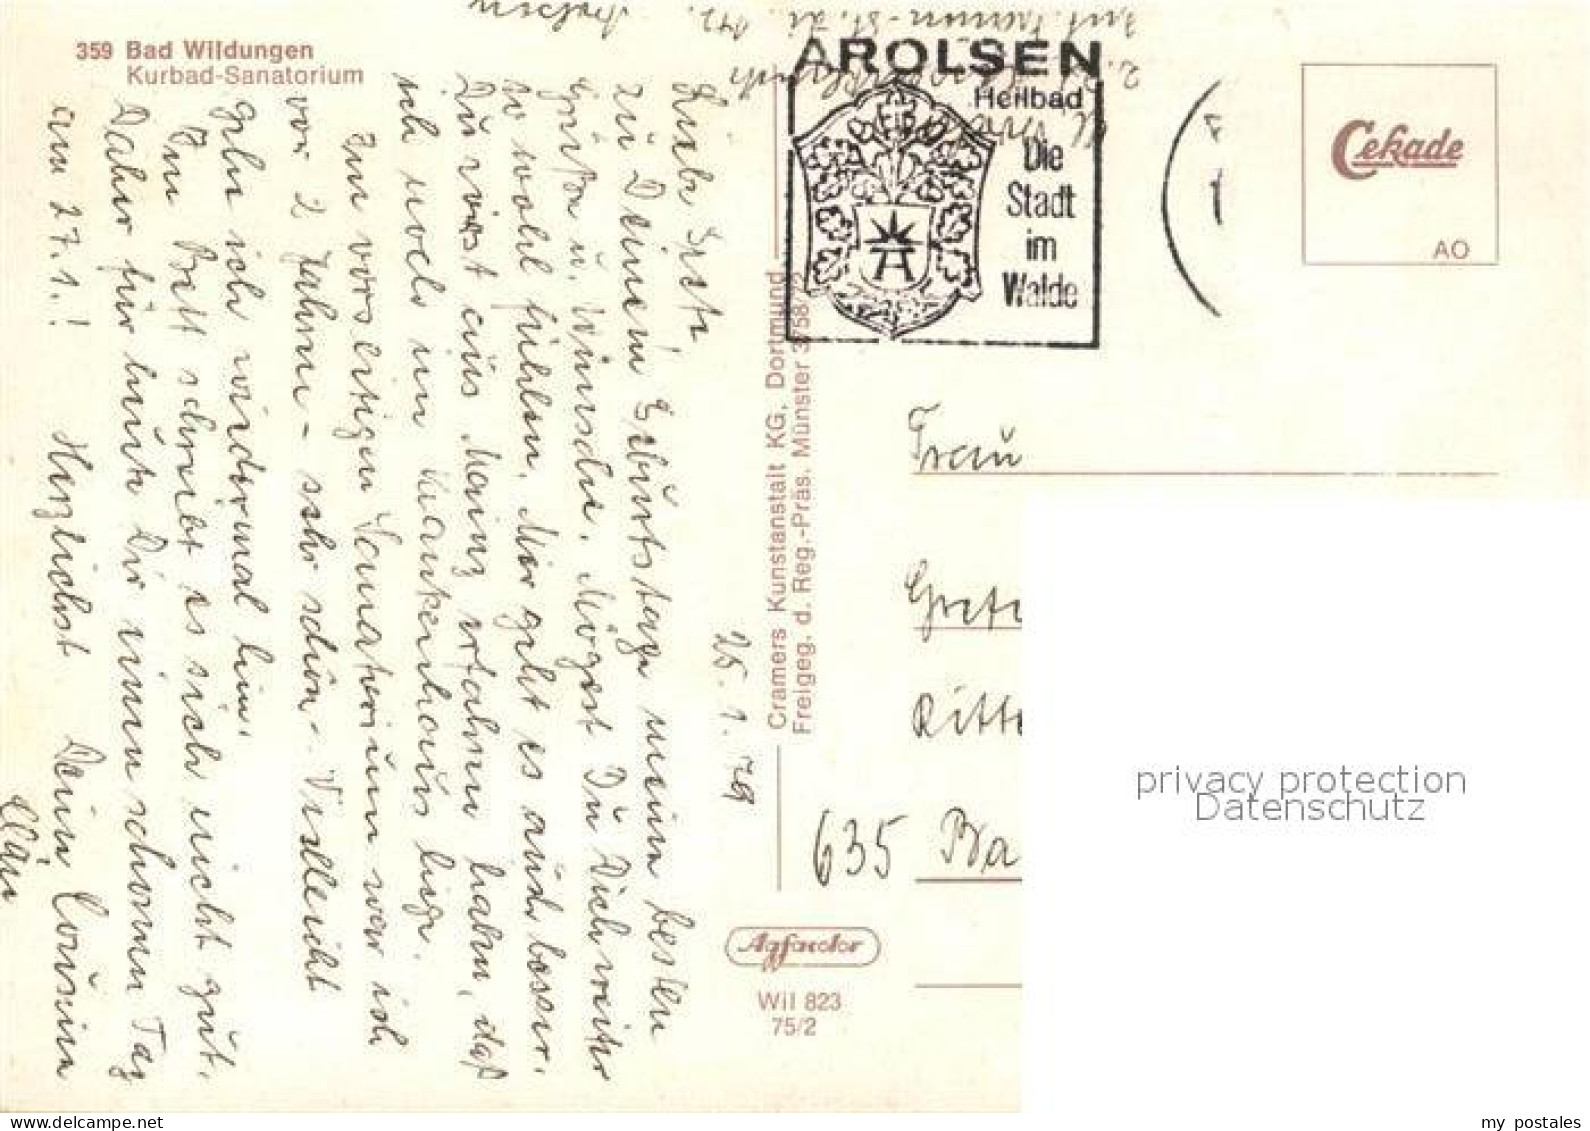 359 Bad Wildungen
Kurbad-Sanatorium
25. 1. 79
Liebe Grete,
zu Deinem Geburtstage meine besten
Grüße u. Wünsche. Mögest Du Dich weiter
so wohl fühlen. Mir geht es auch besser.
Du wirst aus Mainz erfahren haben, daß
ich noch im Krankenhaus liege.
Im vorseitigen Sanatorium war ich
vor 2 Jahren - sehr schön. Vielleicht
gehe ich wieder mal hin.
Im Bett schreibt es sich nicht gut.
Daher für heute Dir einen schönen Tag
am 27.1.! Herzlichst Deine Cousine
Cramers Kunstanstalt KG, Dortmund
Freigeg. d. Reg.-Präs. Münster 3758/
Agfacolor
Wil 823
75/2
Arolsen
AROLSEN
Heilbad
Die
Stadt
im
Walde
Cekade
AO
Frau
Grete
Ritte
635 Ba
privacy protection
Datenschutz
my postales